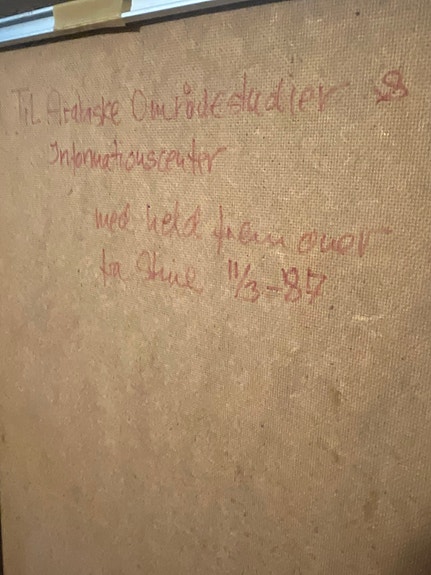 Til Arabiske Områdestudier &
Informationscenter
med held frem over
fra Stine 11/3-87